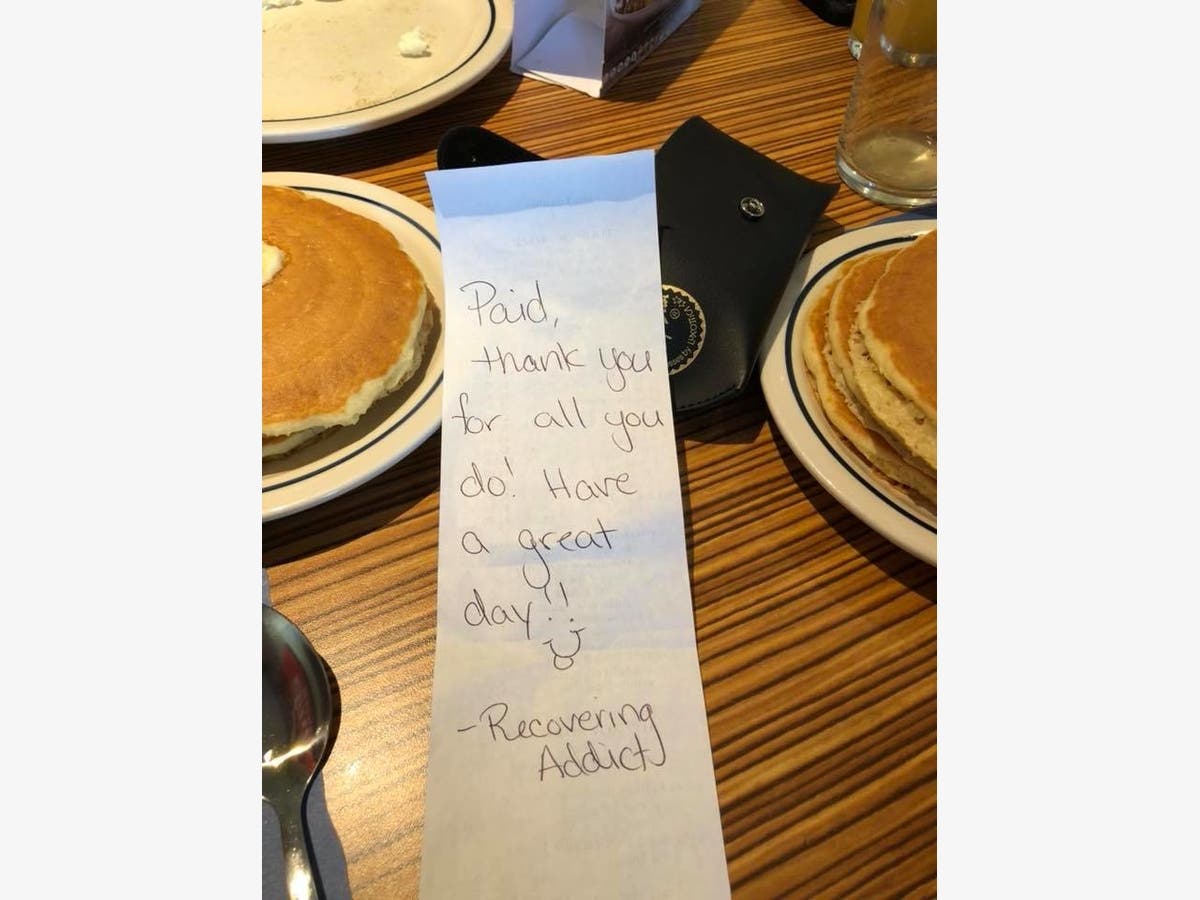 Paid,
thank you
for all you
do! Have
a great
day!!
-Recovering
Addict